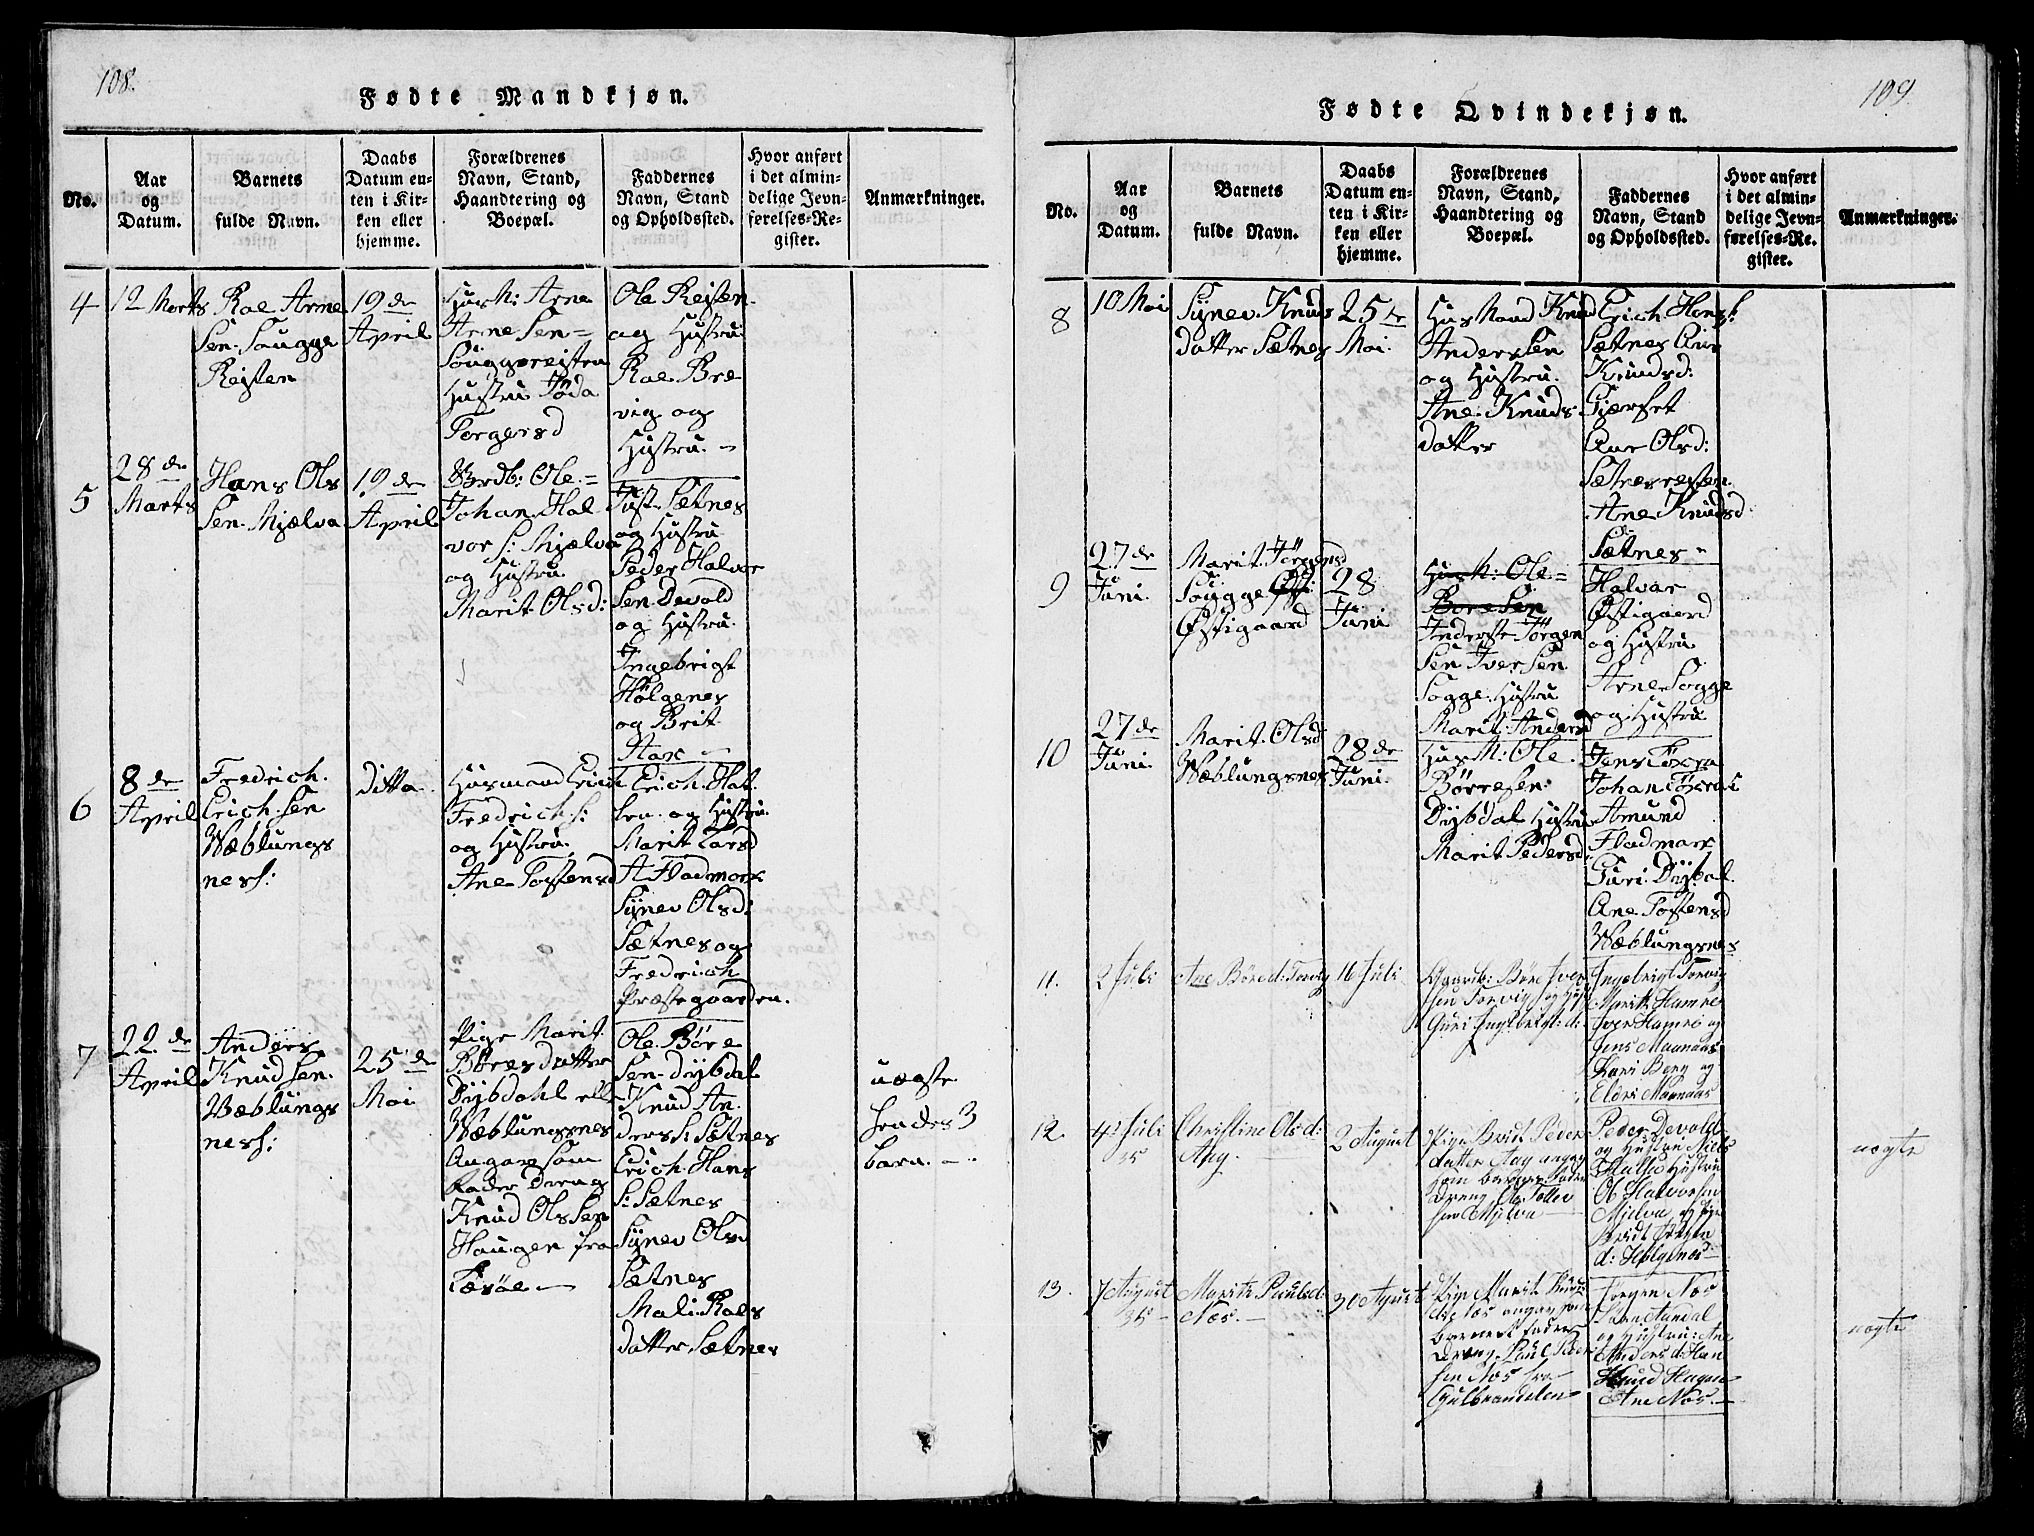 108.
Fødte Mandkjøn.
No.
Aar
og
Datum.
Barnets
fulde Navn.
Daabs
Datum en-
ten i Kir-
ken eller
hjemme.
Forældrenes
Navn, Stand,
Haandtering og
Boepæl.
Faddernes
Navn, Stand
og Opholdssted.
Hvor anført
i det almin-
delige Jevn-
førelses-Re-
gister.
Anmærkninger.
4
12 Marts
Roe Arne
Sen. Sougge
Reisten
19 de
April
Husm: Arne
Arne Sen=
Souggereisten
Hustru
Torgersd
Ole Reisten
og Hustru
Roe Bre
vig og
Hustru. -
5
28 de
Marts
Hans Ols
Sen. Mjælva
19 de
April
Brdb: Ole.=
Johan. Hal
vor s: Mjælva
og Hustru.
Marit Olsd:
Just. Sætnes
og Hustru
Peder Halvor
Sen. Devold
og Hustru.
Ingebrigt
Hølgenes
og Brit.
6
8 de
April
Fredrich.
Erich. Sen
Wæblungs
ness:
ditto
Husmand Erich
Fredrich s:
og Hustru.
Ane Tostensd
Erich. Hat
len. og Hustru.
Marit Larsd
A Fladmark
Sÿnev Olsd:
Sætnes og
Fredrich
Præstegaarden.
7
22 de
April
Anders
Knud sen.
Wæblüngs
ness:
25 de
Mai
Pige Marit
Børes datter
Dÿbdahl ell
Wæblungsnes
Angave som
fader Dreng
Knud Ols Sen
Haugen fra
Læsøe -
Ole Böre
Sen. dÿbdal
Knud An.
ders s: Sætnes
Erich. Hans
S: Sætnes
Sÿnev Olsd
Sætnes
Mali. Roes
datter. Sætnes
uægte
hendes 3
barn. -
109.
Fødte Qvindekjøn.
No.
Aar
og
Datum.
Barnets
fulde Navn.
Daabs
Datum en-
ten i Kir-
ken eller
hjemme.
Forældrenes
Navn, Stand,
Haandtering og
Boepæl.
Faddernes
Navn, Stand
og Opholdssted.
Hvor anført
i det almin-
delige Jevn-
førelses-Re-
gister.
Anmærkninger.
8
10 Mai
Sÿnev. Knuds
datter Sætnes
25 te
Mai.
Hus Mand Knud
Anders Sen
og Hustru.
Ane. Knuds
datter
Erich. Hans s:
Sætnes Ane
Knudsd:
Gjerset
Ane Olsd:
Sætnesreisten
Ane Knudsd
Sætnes -
9
27 de
Juni.
Marit. Jörgensd
Sougge
Østigaard
28
Juni
Husm: Ole.=
Børe Sen
Inderste Jörgen
Sen Iver Sen
Sogge. Hustru
Marit. Andersd
Halvor
Østigaard
og Hustru.
Arne. Sogge
og Hustru
10
27 de
Juni.
Marit. Olsd
Wæblungsnes
28 de
Juni.
Hus M: Ole.
Börresen
Dÿbdal Hustru
Marit Pedersd
Jens
Johan
Amund
Fladmark
Guri. Dÿbdal
Ane. Tostensd
Wæblungsnes
11.
2 Juli
Ane Böresd: Torvig
16 Juli
Gaardb: Böre Iver
sen Torvig og Hust
Guri Ingebrigts: d:
Ingebrigt Torvig
Marith Hamre
Iver Hamre og
Jens Maanaas
Kari Berg og
Eldri Maanaas
12.
4 Juli
35
Christine Ols: d:
Aag.
2 August
Pige Bridt Peder
datter Aag angav
som barnets Fader
Dreng Ole Tolle
sen Mjelva
Peder Devold
og Hustru Niels
Hustru
Ol Halvorsen
Mjelva og
Bridt Jörgen
d: Hölgenes
uægte
13.
7 August
35 -
Marith Paulsd:
Næs. -
30 August
Pige Marith
Næs angav som
barnets fader
Dreng Paul Peder
sen Næs fra
Gulbrandalen
Jørgen Næs
og Hustru: Ane
Anders d:
Knud Hagen
Ane Næs. -
uægte